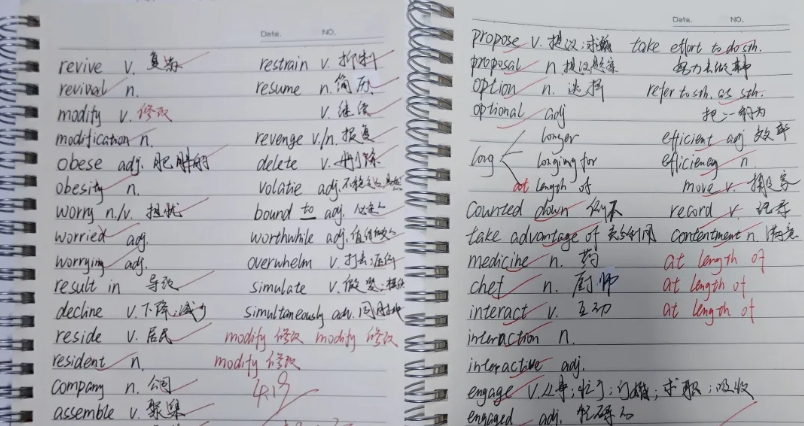 Date. NO.
revive v. 复苏 restrain v. 抑制
revival n. resume n. 简历
modify v. 修改 v. 继续
modification n. revenge v./n. 报复
obese adj. 肥胖的 delete v. 删除
obesity n. volatie adj. 不稳定的
worry n./v. 担忧 bound to adj.
worried adj. worthwhile adj. 值得做的
worrying adj. overwhelm v. 打击;压倒
result in 导致 simulate v.
decline v. 下降;减少 simultaneously adv. 同时地
reside v. 居民 modify 修改 modify 修改
resident n. modify 修改
company n. 公司 4.19
assemble v. 聚集
Date. NO.
propose v. 提议;求婚 take effort to do sth.
proposal n. 提议 努力去做某事
option n. 选择 refer to sth. as sth.
optional adj 把…称为
longer efficient adj. 效率
long longing for efficieney n
at length of move v.
Counted down record v. 记录
take advantage of contentment n. 满意
medicine n. 药 at length of
chef n. 厨师 at length of
interact v. 互动 at length of
interaction n.
interactive adj.
engage v. 从事;忙于;订婚;求职;吸收
engaged adj.